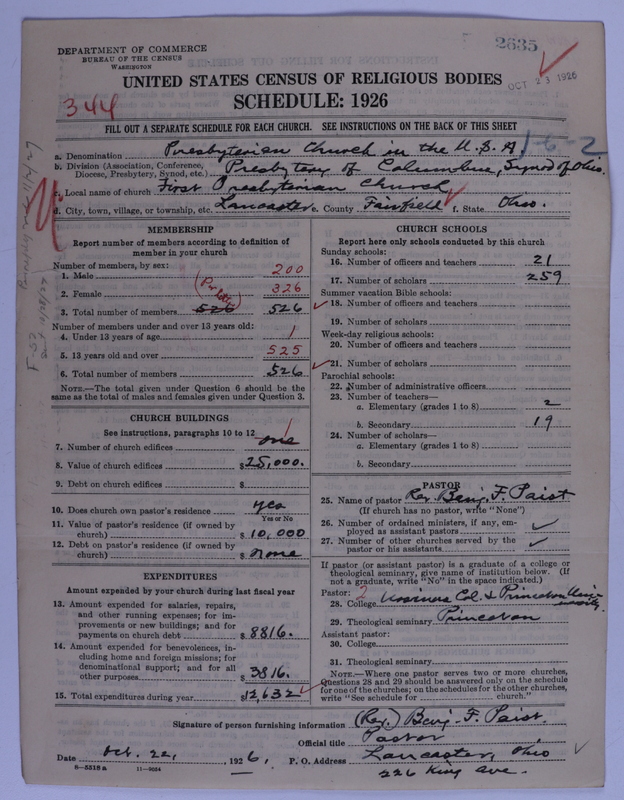 2635
OCT 23 1926
DEPARTMENT OF COMMERCE
BUREAU OF THE CENSUS
WASHINGTON
UNITED STATES CENSUS OF RELIGIOUS BODIES
SCHEDULE: 1926
344
FILL OUT A SEPARATE SCHEDULE FOR EACH CHURCH. SEE INSTRUCTIONS ON THE BACK OF THIS SHEET
1-6-2
a. Denomination Presbyterian Church in the U.S.A.
b. Division (Association, Conference, Diocese, Presbytery, Synod, etc.) Presbytery of Columbus, Synod of Ohio.
c. Local name of church First Presbyterian Church
d. City, town, village, or township, etc. Lancaster e. County Fairfield f. State Ohio.
MEMBERSHIP
Report number of members according to definition of
member in your church
Number of members, by sex:
1. Male 200
2. Female 326
3. Total number of members 526 526
Number of members under and over 13 years old:
4. Under 13 years of age 1
5. 13 years old and over 525
6. Total number of members 526
NOTE.—The total given under Question 6 should be the
same as the total of males and females given under Question 3.
CHURCH BUILDINGS
See instructions, paragraphs 10 to 12
7. Number of church edifices one 1
8. Value of church edifices $25,000.
9. Debt on church edifices $
10. Does church own pastor's residence yes
Yes or No
11. Value of pastor's residence (if owned by
church) $10,000
12. Debt on pastor's residence (if owned by
church) $none
EXPENDITURES
Amount expended by your church during last fiscal year
13. Amount expended for salaries, repairs,
and other running expenses; for im-
provements or new buildings; and for
payments on church debt $8816.
14. Amount expended for benevolences, in-
cluding home and foreign missions; for
denominational support; and for all
other purposes $3816.
15. Total expenditures during year $12,632
CHURCH SCHOOLS
Report here only schools conducted by this church
Sunday schools:
16. Number of officers and teachers 21
17. Number of scholars 259
Summer vacation Bible schools:
18. Number of officers and teachers
19. Number of scholars
Week-day religious schools:
20. Number of officers and teachers
21. Number of scholars
Parochial schools:
22. Number of administrative officers
23. Number of teachers—
a. Elementary (grades 1 to 8) 2
b. Secondary 19
24. Number of scholars—
a. Elementary (grades 1 to 8)
b. Secondary
PASTOR
25. Name of pastor Rev. Benj. F. Paist
(If church has no pastor, write "None")
26. Number of ordained ministers, if any, em-
ployed as assistant pastors
27. Number of other churches served by the
pastor or his assistants
If pastor (or assistant pastor) is a graduate of a college or
theological seminary, give name of institution below. (If
not a graduate, write "No" in the space indicated.)
Pastor: 2
28. College Ursinus Col. & Princeton University
29. Theological seminary Princeton
Assistant pastor:
30. College
31. Theological seminary
NOTE.—Where one pastor serves two or more churches,
Questions 28 and 29 should be answered only on the schedule
for one of the churches; on the schedules for the other churches,
write "See schedule for church."
Signature of person furnishing information (Rev.) Benj. F. Paist.
Official title Pastor
Date Oct. 22, 1926. P. O. Address Lancaster, Ohio
226 King Ave.
8—5518a 11—9024